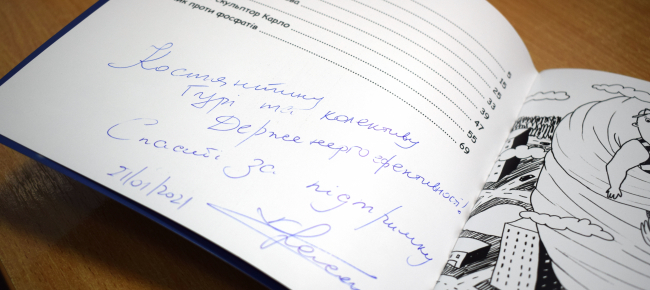 ова
Скульптор Карло
ик проти фосфатів
5
15
25
33
39
47
55
69
Костянтину
Гурі та колективу
Держенергоефективності!
Спасибі за підтримку
21/01/2021